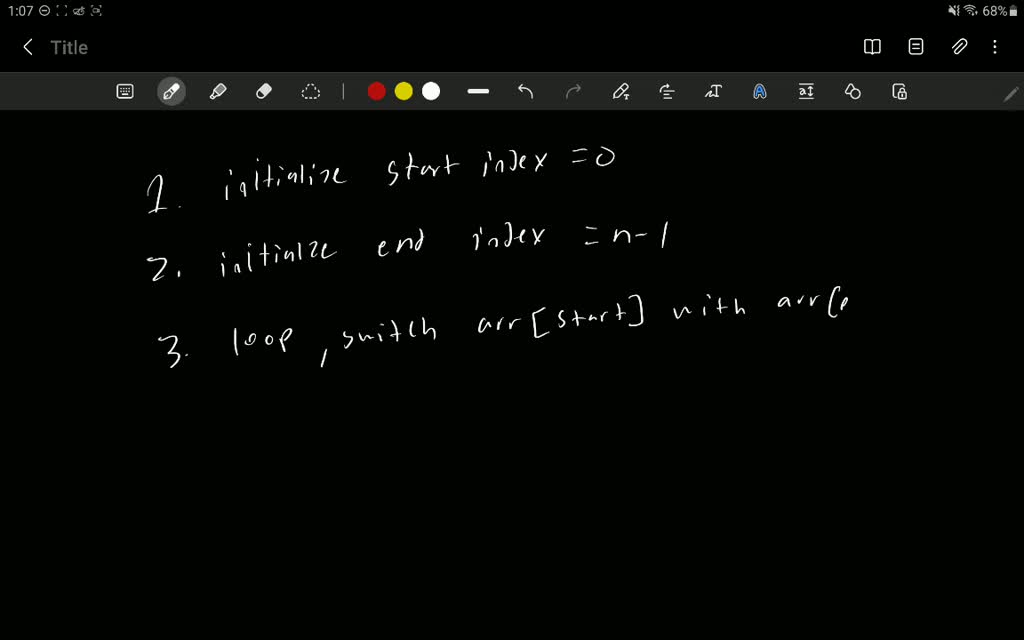 1:07 68%
Title
1. initialize start index = 0
2. initialze end index = n-1
3. loop, switch arr[start] with arr[e